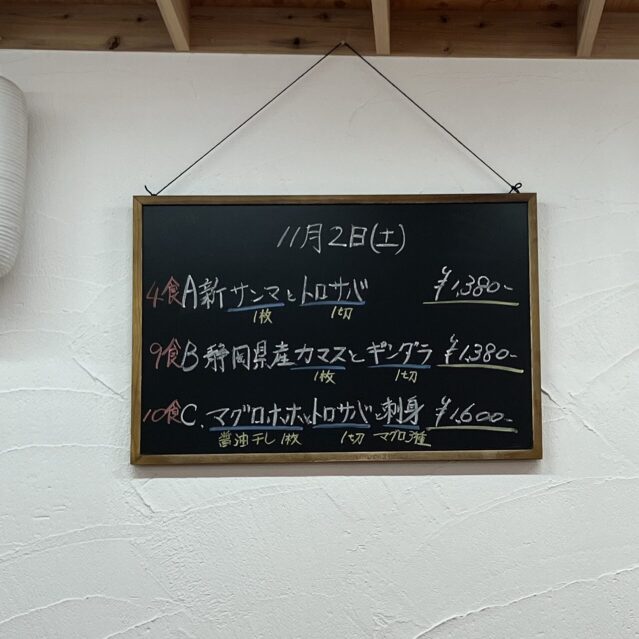 11月2日(土)
4食 A 新サンマとトロサバ ¥1,380-
1枚 1切
9食 B 静岡県産カマスとギンダラ ¥1,380-
1枚 1切
10食 C. マグロホホとトロサバと刺身 ¥1,600-
醤油干し 1枚 1切 マグロ2種